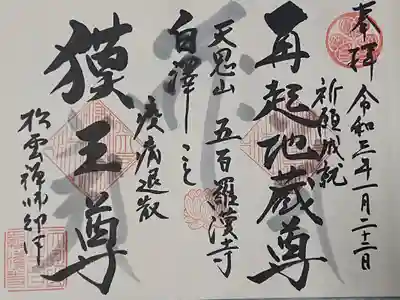 奉拝
令和三年一月二十二日
祈願成就
再起地蔵尊
天恩山 五百羅漢寺
白澤しこと
疫病退散
獏王尊
松雲禅師御作